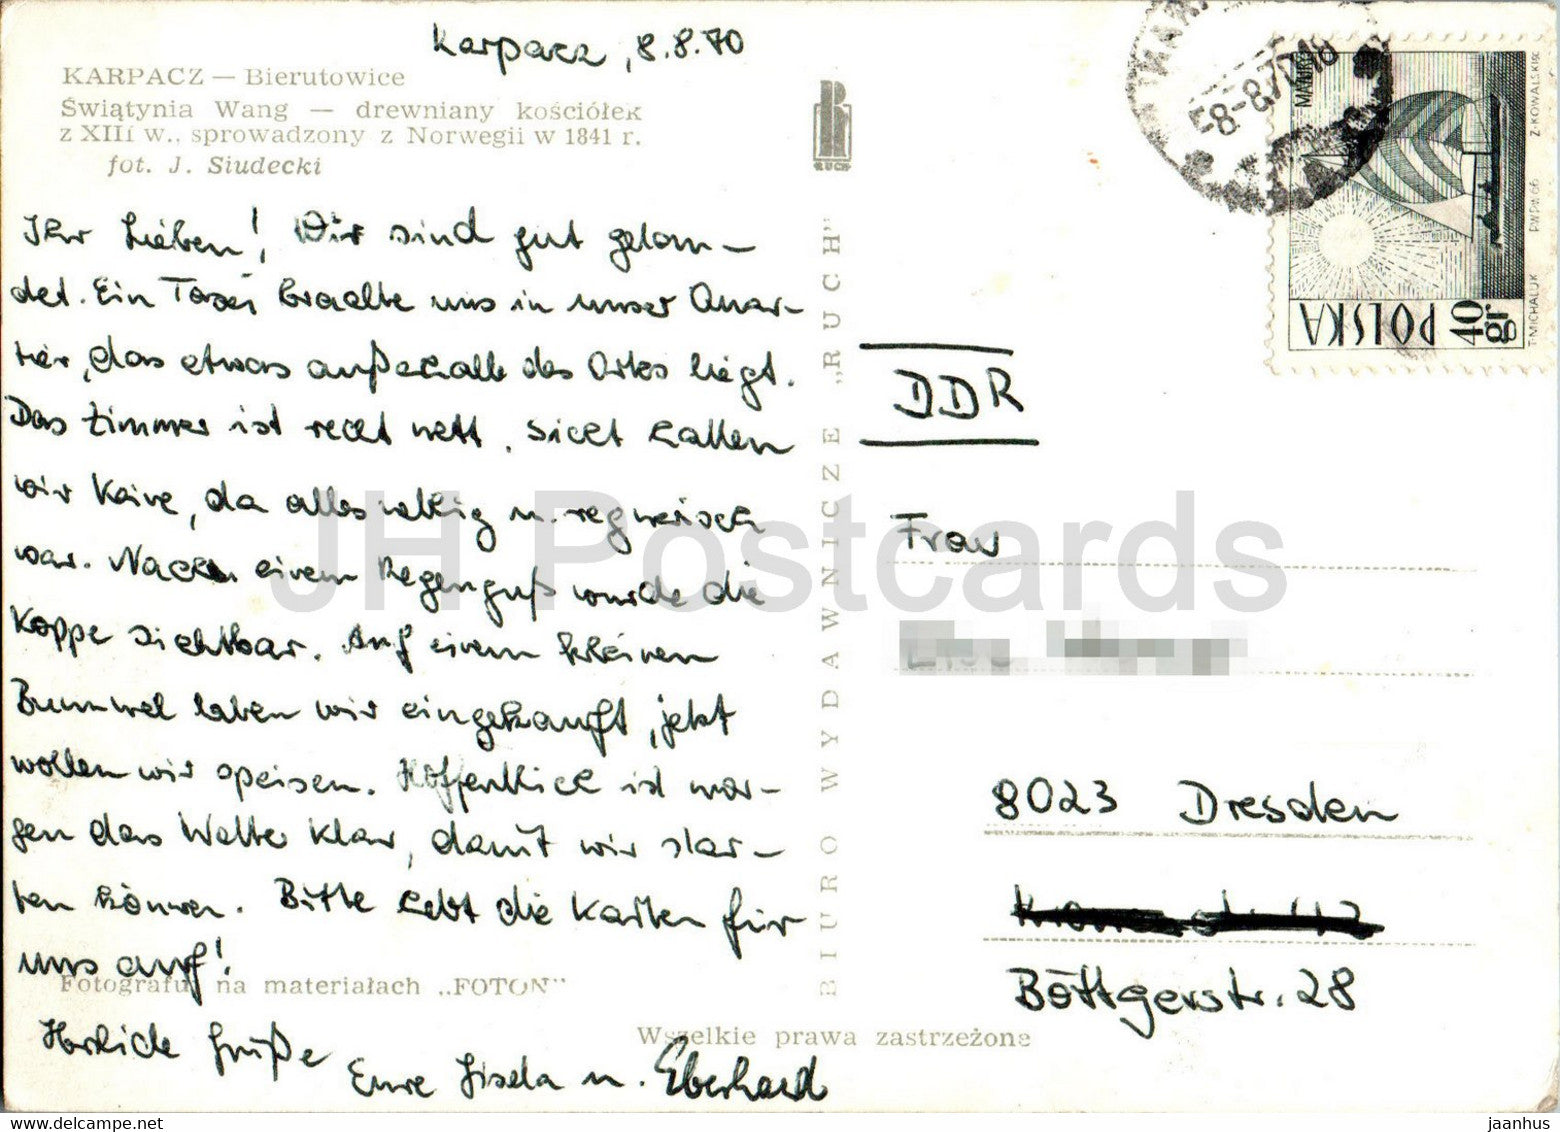 Karpacz, 8.8.70
KARPACZ — Bierutowice
Świątynia Wang — drewniany kościółek
z XIII w., sprowadzony z Norwegii w 1841 r.
fot. J. Siudecki
Ihr Lieben! Wir sind gut gelan-
det. Ein Taxi brachte uns in unser Quar-
tier, das etwas außerhalb des Ortes liegt.
Das Zimmer ist recht nett. Sicht hatten
wir keine, da alles wolkig u. regnerisch
war. Nach einem Regenguß wurde die
Koppe sichtbar. Auf einem kleinen
Bummel haben wir eingekauft, jetzt
wollen wir speisen. Hoffentlich ist mor-
gen das Wetter klar, damit wir star-
ten können. Bitte hebt die Karten für
uns auf!
Fotografuj na materiałach „FOTON"
Herzliche Grüße
Eure Gisela u. Eberhard
Wszelkie prawa zastrzeżone
RUCH
BIURO WYDAWNICZE „RUCH"
-8-8.70-18
MAZURY
POLSKA
40 gr
T·MICHALUK PWPW 66 Z·KOWALSKI
DDR
Frau
8023 Dresden
Böttgerstr. 28
JH Postcards
www.delcampe.net
jaanhus